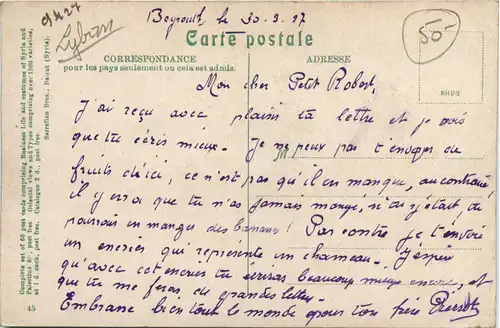 9427
Lyban
Beyrouth, le 30-3-27
50
Carte postale
CORRESPONDANCE
pour les pays seulement ou cela est admis.
ADRESSE
Mon cher Petit Robert,
J'ai reçu avec plaisir ta lettre et je vois
que tu écris mieux. Je ne peux pas t'envoyer de
fruits d'ici, ce n'est pas qu'il en manque, au contraire
il y en a que tu n'as jamais mangé, si tu y était tu
pourrais en manger des bananes! Par contre je t'envoie
un encrier qui représente un chameau. J'espère
qu'avec cet encrier tu écriras beaucoup mieux encore, et
que tu me feras de grandes lettres.
Embrasse bien tout le monde pour ton frère
Complete set of 60 post cards comprising Business Life and costumes of Syria and
Palestine 8/-, post free Oriental views and Types comprising over 1500 varieties,
at 1 d. each, post free. Catalogue 2 d., post free.
Sarrafian Bros., Beirut (Syria).
45